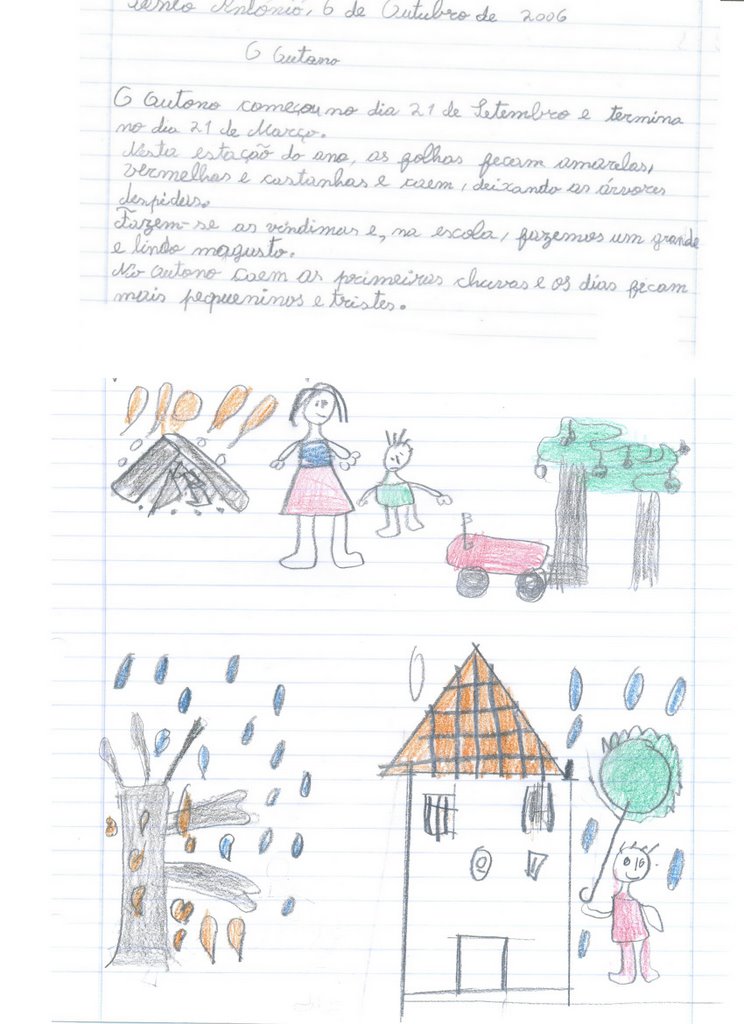 Santo António, 6 de Outubro de 2006
O Outono
O Outono começou no dia 21 de Setembro e termina
no dia 21 de Março.
Nesta estação do ano, as folhas fecam amarelas,
vermelhas e castanhas e caem, deixando as árvores
despidas.
Fazem-se as vindimas e, na escola, fazemos um grande
e lindo magusto.
No Outono caem as primeiras chuvas e os dias fecam
mais pequeninos e tristes.